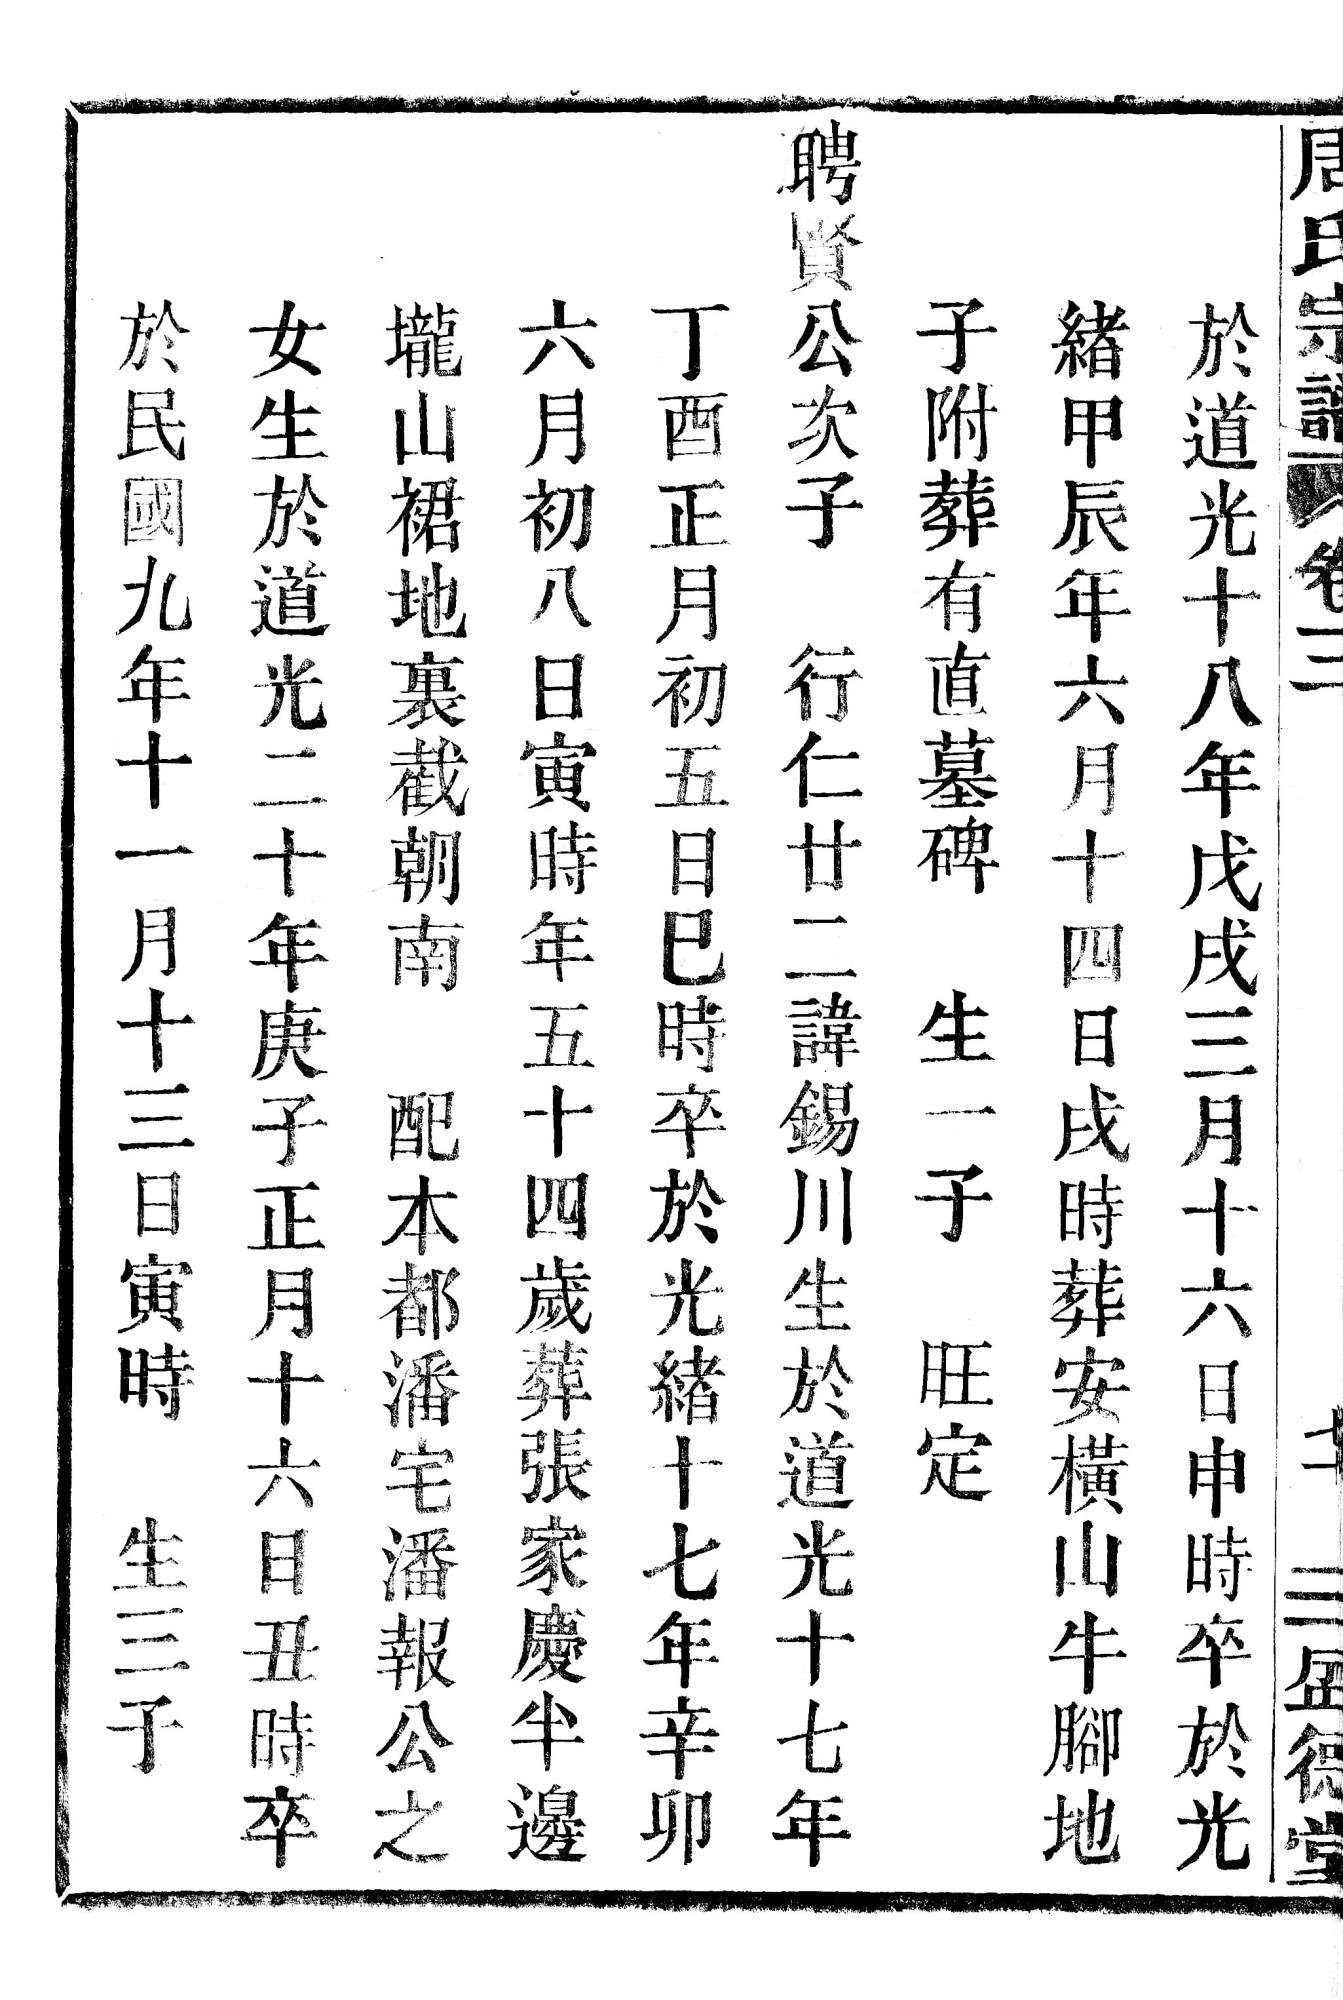 周氏宗譜 卷三 七 三孟德堂
於道光十八年戊戌三月十六日申時卒於光
緒甲辰年六月十四日戌時葬安橫山牛腳地
子附葬有直墓碑 生一子 旺定
聘賢公次子 行仁廿二諱錫川生於道光十七年
丁酉正月初五日巳時卒於光緒十七年辛卯
六月初八日寅時年五十四歲葬張家慶半邊
壠山裙地裏截朝南 配本都潘宅潘報公之
女生於道光二十年庚子正月十六日丑時卒
於民國九年十一月十三日寅時 生三子